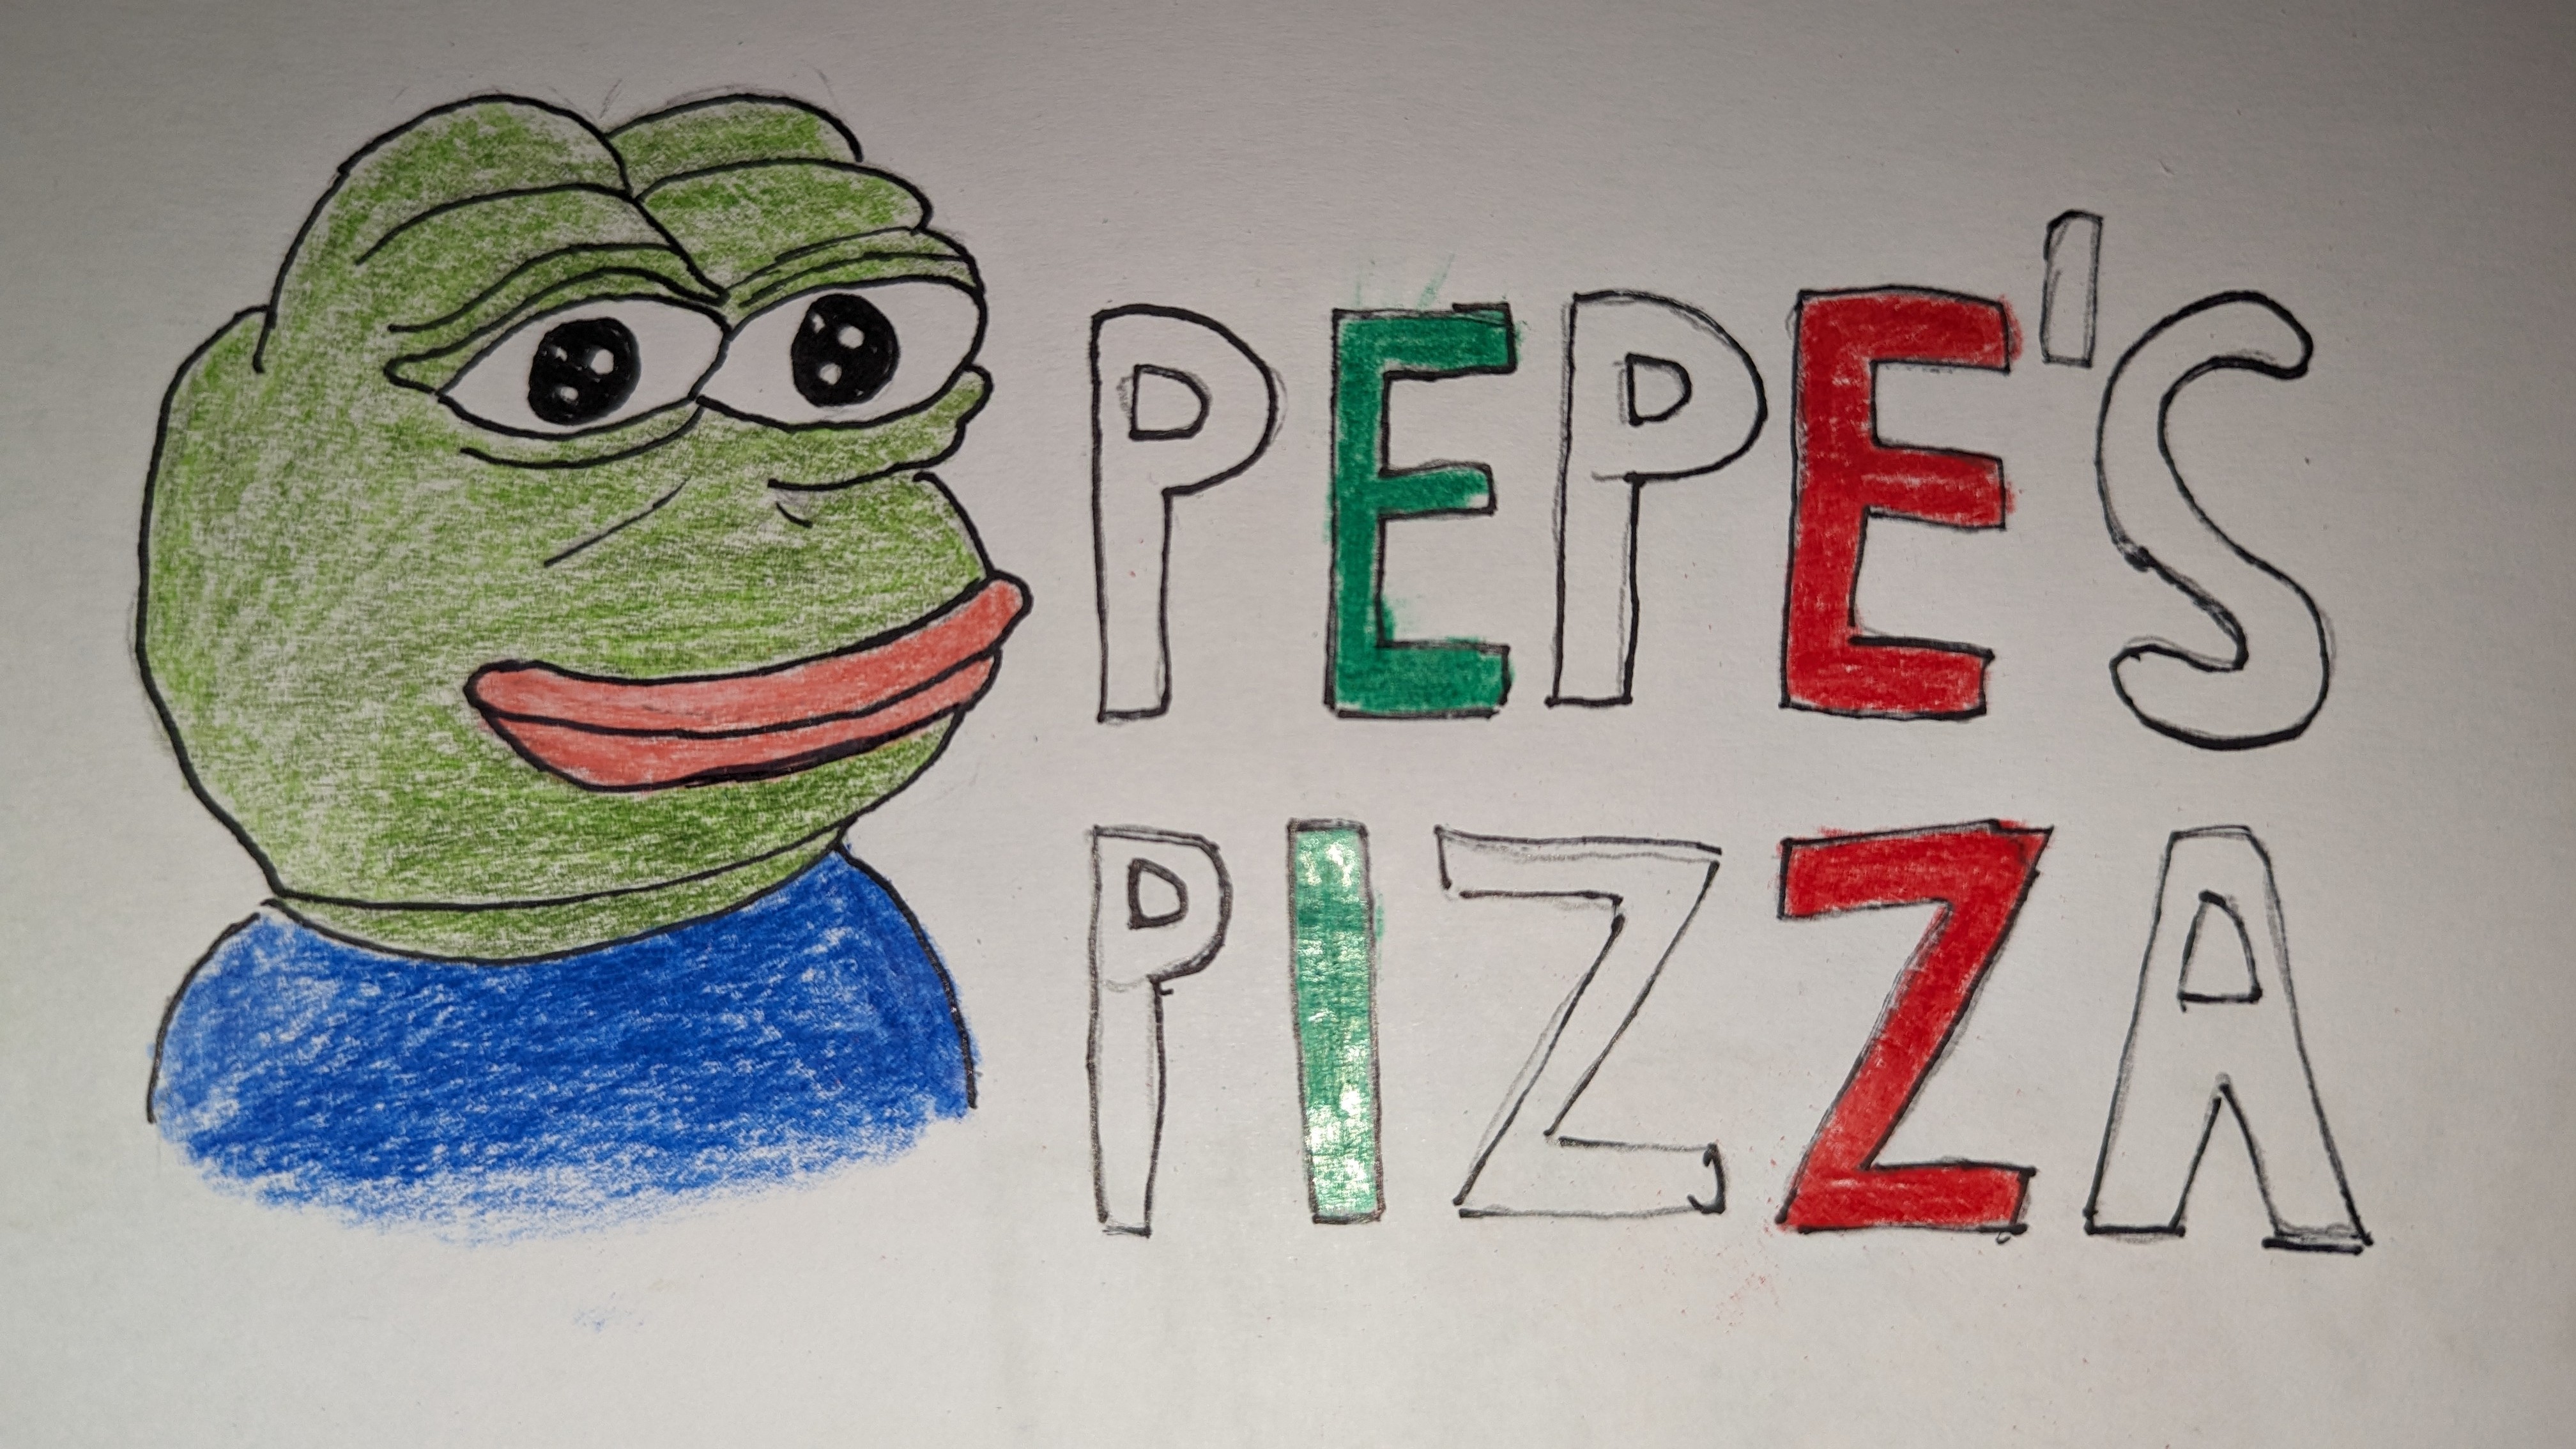 PEPE'S
PIZZA